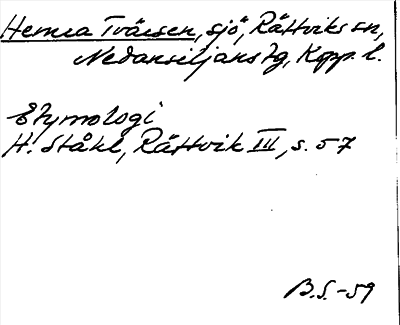 Hemra Tväcsen, sjö, Rättviks sn,
Nedansiljans tg, Kopp. l.
Etymologi
H. Ståhl, Rättvik III, s. 57
B.S. -59